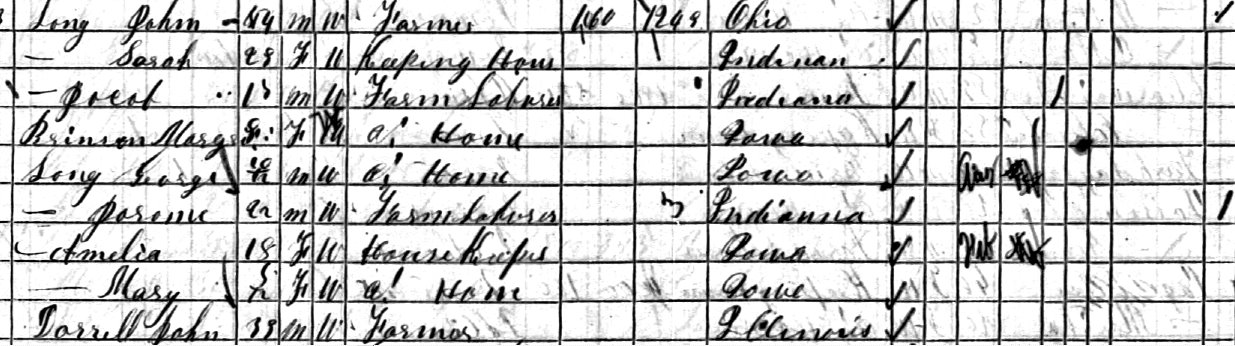 Long John 49 m W Farmer 1,60 1249 Ohio
— Sarah 28 F W Keeping Hous Indinan
— m W Farm Laburer Indiana
Brinson Mary F W At Home Iowa
Long George m W At Home Iowa
— Jarome 22 m W Farm Laburer Indianna 1
— Amelia 18 F W House Keeper Iowa
— Mary F W At Home Iowa
Darrell John 39 m W Farmer Illinois